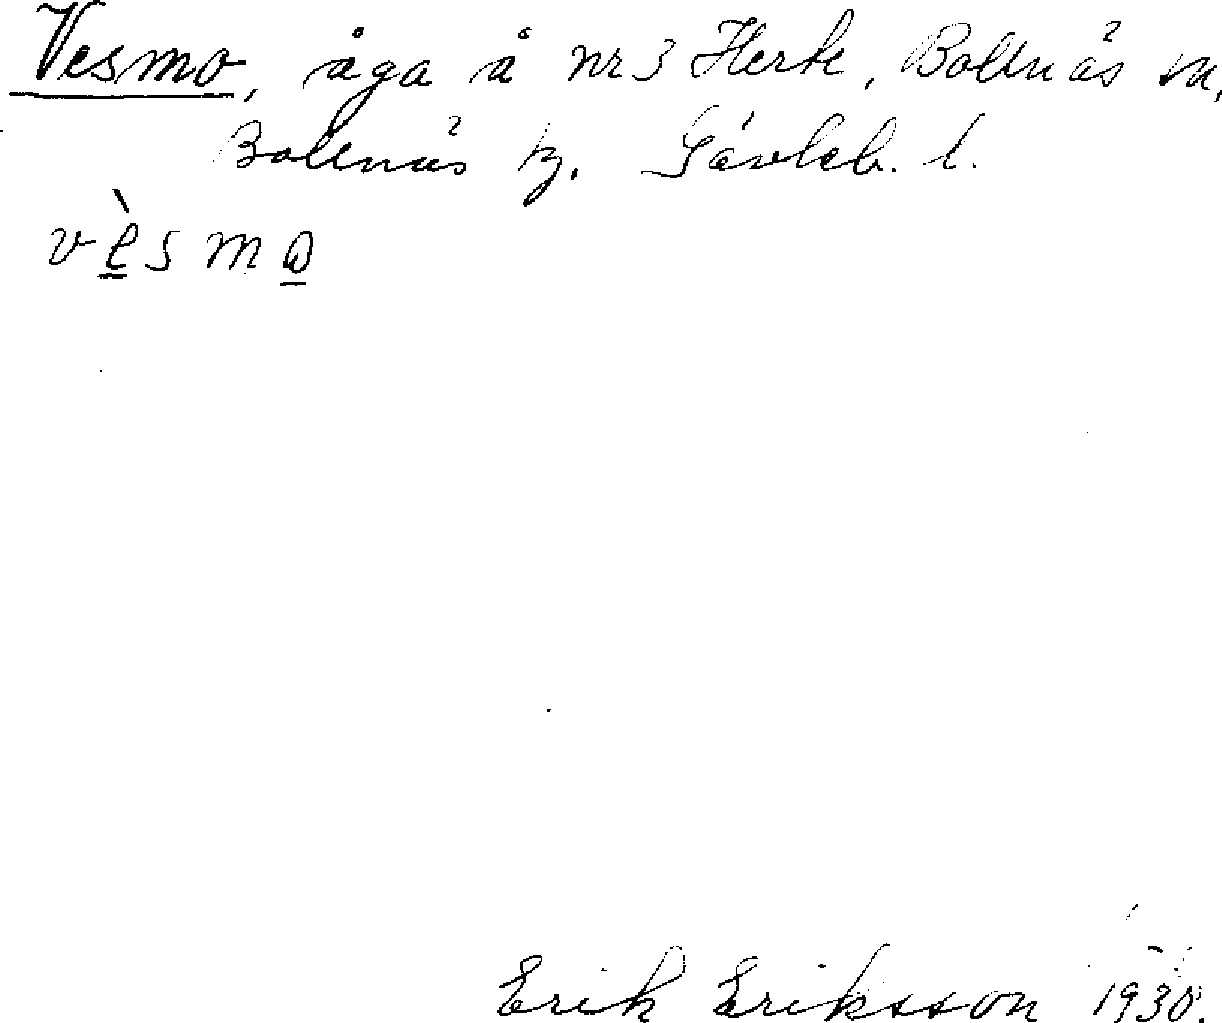 Vesmo, åga å nr 3 Herte, Bollnäs sn,
Bollnäs tg. Gävleb. l.
vèsmo
Erik Eriksson 1930.